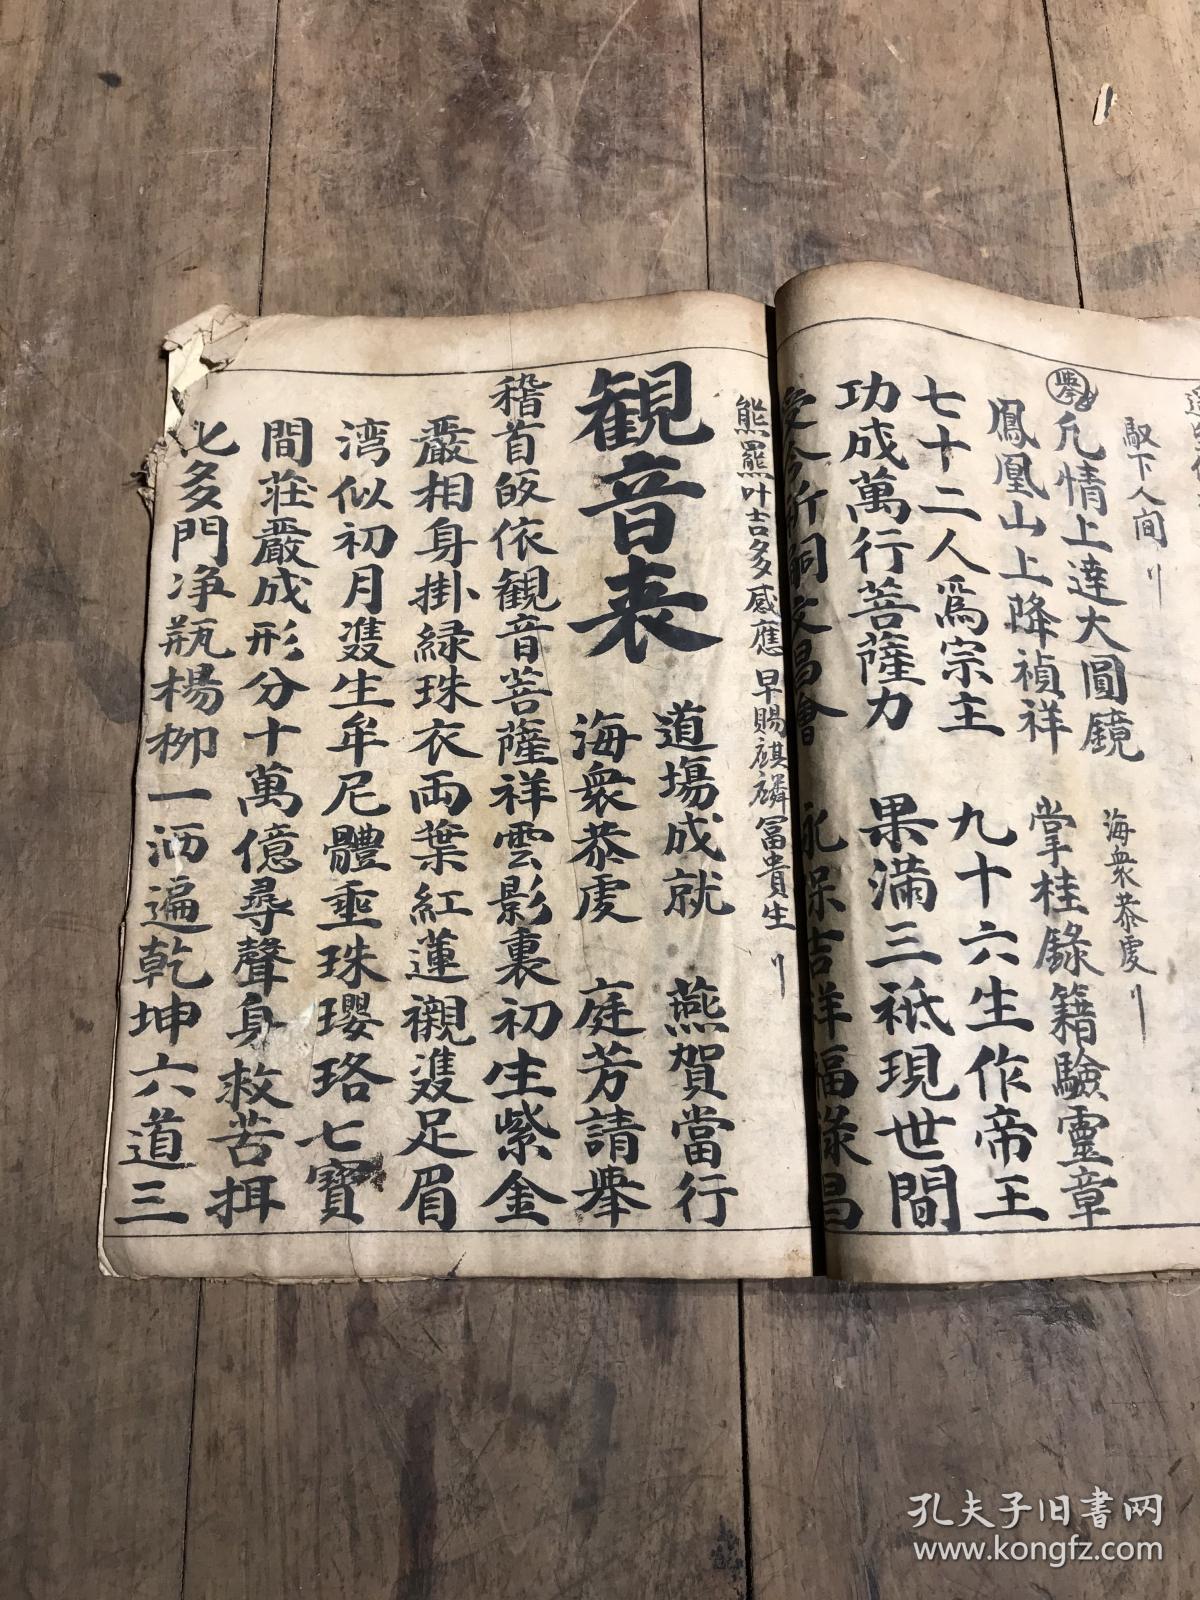 馭下人间
㪯允情上達大圓鏡 海衆恭虔
鳳凰山上降禎祥 掌桂錄籍驗靈章
七十二人為宗主 九十六生作帝王
功成萬行菩薩力 果滿三祗現世間
文昌會 永保吉祥福祿昌
熊羆叶吉多感應 早賜麒麟冨貴生
道塲成就 燕賀當行
観音表 海衆恭虔 庭芳請舉
稽首皈依観音菩薩祥雲影裏初生紫金
嚴相身掛緑珠衣両葉紅蓮襯雙足眉
湾似初月雙生牟尼體垂珠瓔珞七寶
間莊嚴成形分十萬億尋聲身救苦揖
多門净瓶楊柳一洒遍乾坤六道三
孔夫子旧書网
www.kongfz.com